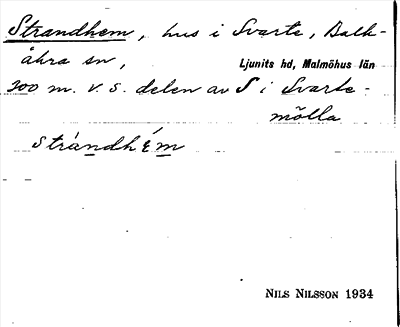 Strandhem, hus i Svarte, Balk-
åkra sn, Ljunits hd, Malmöhus län
300 m. v. s. delen av S i Svarte-
mölla
strándhɛ́m
NILS NILSSON 1934